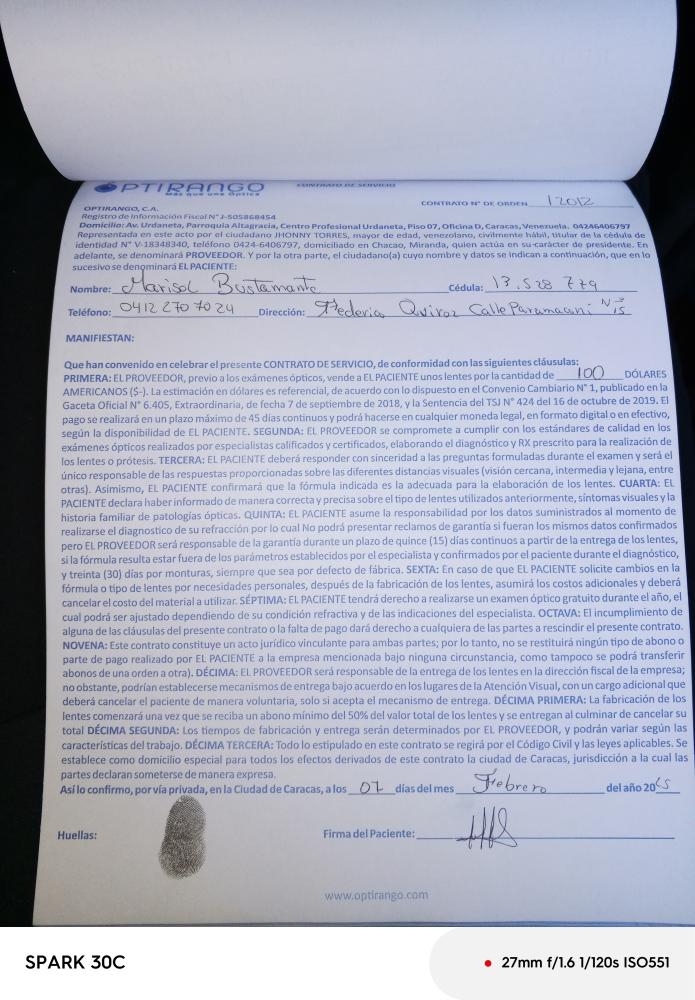 OPTIRANGO
Más que una Óptica
CONTRATO DE SERVICIO
CONTRATO N° DE ORDEN 12012
OPTIRANGO, C.A.
Registro de Información Fiscal N° J-505868454
Domicilio: Av. Urdaneta, Parroquia Altagracia, Centro Profesional Urdaneta, Piso 07, Oficina D, Caracas, Venezuela. 04246406797
Representada en este acto por el ciudadano JHONNY TORRES, mayor de edad, venezolano, civilmente hábil, titular de la cédula de
identidad N° V-18348340, teléfono 0424-6406797, domiciliado en Chacao, Miranda, quien actúa en su carácter de presidente. En
adelante, se denominará PROVEEDOR. Y por la otra parte, el ciudadano(a) cuyo nombre y datos se indican a continuación, que en lo
sucesivo se denominará EL PACIENTE:
Nombre: Marisol Bustamante Cédula: 13.528 779
Teléfono: 0412 270 70 24 Dirección: Federico Quiroz Calle Paramaconi N° 15
MANIFIESTAN:
Que han convenido en celebrar el presente CONTRATO DE SERVICIO, de conformidad con las siguientes cláusulas:
PRIMERA: EL PROVEEDOR, previo a los exámenes ópticos, vende a EL PACIENTE unos lentes por la cantidad de 100 DÓLARES
AMERICANOS ($-). La estimación en dólares es referencial, de acuerdo con lo dispuesto en el Convenio Cambiario N° 1, publicado en la
Gaceta Oficial N° 6.405, Extraordinaria, de fecha 7 de septiembre de 2018, y la Sentencia del TSJ N° 424 del 16 de octubre de 2019. El
pago se realizará en un plazo máximo de 45 días continuos y podrá hacerse en cualquier moneda legal, en formato digital o en efectivo,
según la disponibilidad de EL PACIENTE. SEGUNDA: EL PROVEEDOR se compromete a cumplir con los estándares de calidad en los
exámenes ópticos realizados por especialistas calificados y certificados, elaborando el diagnóstico y RX prescrito para la realización de
los lentes o prótesis. TERCERA: EL PACIENTE deberá responder con sinceridad a las preguntas formuladas durante el examen y será el
único responsable de las respuestas proporcionadas sobre las diferentes distancias visuales (visión cercana, intermedia y lejana, entre
otras). Asimismo, EL PACIENTE confirmará que la fórmula indicada es la adecuada para la elaboración de los lentes. CUARTA: EL
PACIENTE declara haber informado de manera correcta y precisa sobre el tipo de lentes utilizados anteriormente, síntomas visuales y la
historia familiar de patologías ópticas. QUINTA: EL PACIENTE asume la responsabilidad por los datos suministrados al momento de
realizarse el diagnostico de su refracción por lo cual No podrá presentar reclamos de garantía si fueran los mismos datos confirmados
pero EL PROVEEDOR será responsable de la garantía durante un plazo de quince (15) días continuos a partir de la entrega de los lentes,
si la fórmula resulta estar fuera de los parámetros establecidos por el especialista y confirmados por el paciente durante el diagnóstico,
y treinta (30) días por monturas, siempre que sea por defecto de fábrica. SEXTA: En caso de que EL PACIENTE solicite cambios en la
fórmula o tipo de lentes por necesidades personales, después de la fabricación de los lentes, asumirá los costos adicionales y deberá
cancelar el costo del material a utilizar. SÉPTIMA: EL PACIENTE tendrá derecho a realizarse un examen óptico gratuito durante el año, el
cual podrá ser ajustado dependiendo de su condición refractiva y de las indicaciones del especialista. OCTAVA: El incumplimiento de
alguna de las cláusulas del presente contrato o la falta de pago dará derecho a cualquiera de las partes a rescindir el presente contrato.
NOVENA: Este contrato constituye un acto jurídico vinculante para ambas partes; por lo tanto, no se restituirá ningún tipo de abono o
parte de pago realizado por EL PACIENTE a la empresa mencionada bajo ninguna circunstancia, como tampoco se podrá transferir
abonos de una orden a otra). DÉCIMA: EL PROVEEDOR será responsable de la entrega de los lentes en la dirección fiscal de la empresa;
no obstante, podrían establecerse mecanismos de entrega bajo acuerdo en los lugares de la Atención Visual, con un cargo adicional que
deberá cancelar el paciente de manera voluntaria, solo si acepta el mecanismo de entrega. DÉCIMA PRIMERA: La fabricación de los
lentes comenzará una vez que se reciba un abono mínimo del 50% del valor total de los lentes y se entregan al culminar de cancelar su
total DÉCIMA SEGUNDA: Los tiempos de fabricación y entrega serán determinados por EL PROVEEDOR, y podrán variar según las
características del trabajo. DÉCIMA TERCERA: Todo lo estipulado en este contrato se regirá por el Código Civil y las leyes aplicables. Se
establece como domicilio especial para todos los efectos derivados de este contrato la ciudad de Caracas, jurisdicción a la cual las
partes declaran someterse de manera expresa.
Así lo confirmo, por vía privada, en la Ciudad de Caracas, a los 07 días del mes Febrero del año 20
Huellas:
Firma del Paciente:
www.optirango.com
SPARK 30C
27mm f/1.6 1/120s ISO551